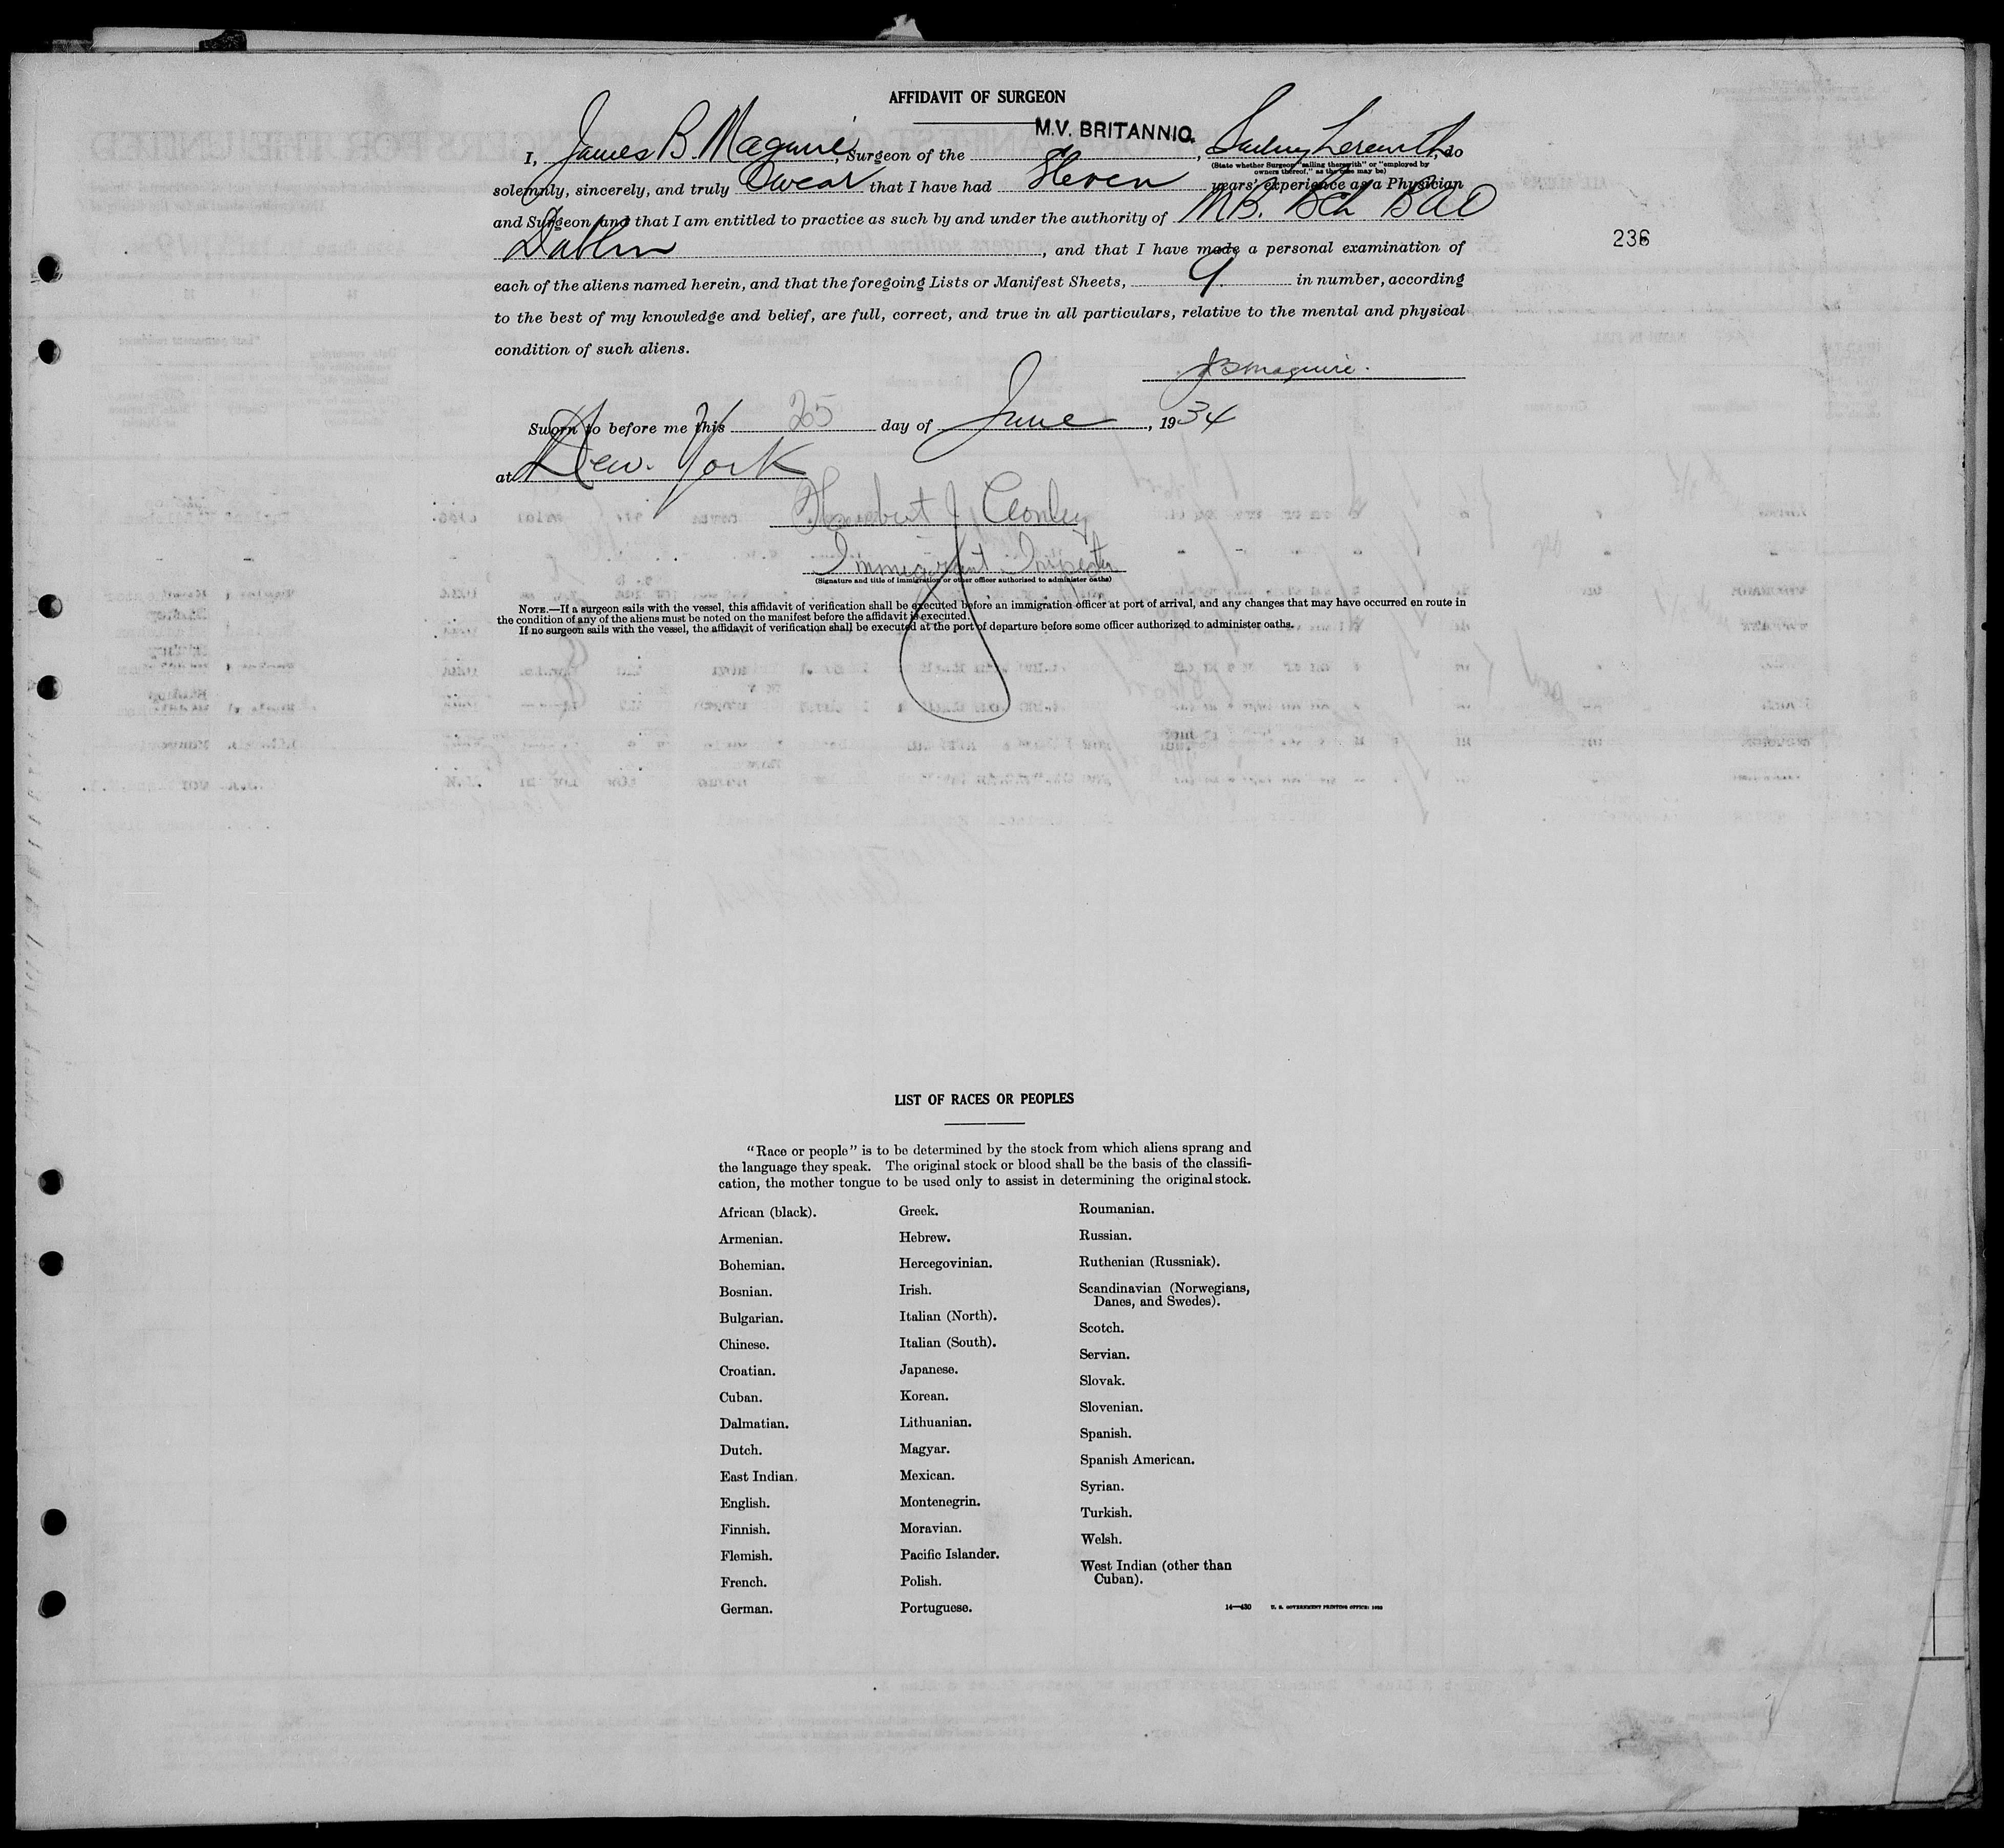 AFFIDAVIT OF SURGEON
I, James B. Maguire, Surgeon of the M.V. BRITANNIC, Sailing therewith, do
(State whether Surgeon "sailing therewith" or "employed by owners thereof," as the case may be)
solemnly, sincerely, and truly Swear that I have had Eleven years' experience as a Physician
and Surgeon and that I am entitled to practice as such by and under the authority of MB. BCh BAO
Dublin, and that I have made a personal examination of
236
each of the aliens named herein, and that the foregoing Lists or Manifest Sheets, 9 in number, according
to the best of my knowledge and belief, are full, correct, and true in all particulars, relative to the mental and physical
condition of such aliens.
JBMaguire.
Sworn to before me this 25 day of June, 1934
at New York
Herbert J Conley
Immigrant Inspector
(Signature and title of immigration or other officer authorized to administer oaths)
NOTE.—If a surgeon sails with the vessel, this affidavit of verification shall be executed before an immigration officer at port of arrival, and any changes that may have occurred en route in
the condition of any of the aliens must be noted on the manifest before the affidavit is executed.
If no surgeon sails with the vessel, the affidavit of verification shall be executed at the port of departure before some officer authorized to administer oaths.
LIST OF RACES OR PEOPLES
"Race or people" is to be determined by the stock from which aliens sprang and
the language they speak. The original stock or blood shall be the basis of the classifi-
cation, the mother tongue to be used only to assist in determining the original stock.
African (black).
Armenian.
Bohemian.
Bosnian.
Bulgarian.
Chinese.
Croatian.
Cuban.
Dalmatian.
Dutch.
East Indian.
English.
Finnish.
Flemish.
French.
German.
Greek.
Hebrew.
Hercegovinian.
Irish.
Italian (North).
Italian (South).
Japanese.
Korean.
Lithuanian.
Magyar.
Mexican.
Montenegrin.
Moravian.
Pacific Islander.
Polish.
Portuguese.
Roumanian.
Russian.
Ruthenian (Russniak).
Scandinavian (Norwegians,
Danes, and Swedes).
Scotch.
Servian.
Slovak.
Slovenian.
Spanish.
Spanish American.
Syrian.
Turkish.
Welsh.
West Indian (other than
Cuban).
14—430 U. S. GOVERNMENT PRINTING OFFICE: